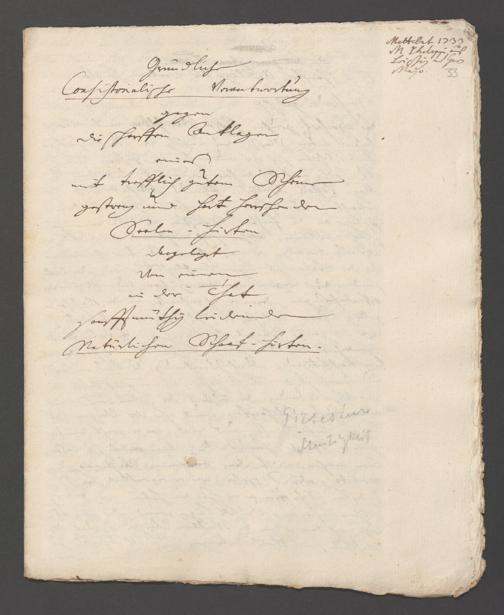 Gründlich
Consistorialische Verantwortung
gegen
die scharffen Anklagen
eines
mit trefflich gutem Scheine
gestreng und hart herrschenden
Seelen-Hirten
dargelegt
Von einem
in der That
sanfftmüthig leidenden
Natürlichen Schaaf-Hirten.
1737
53